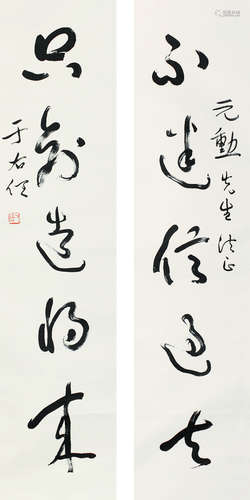 不迷信過去
元勳先生法正
只創造將來
于右任